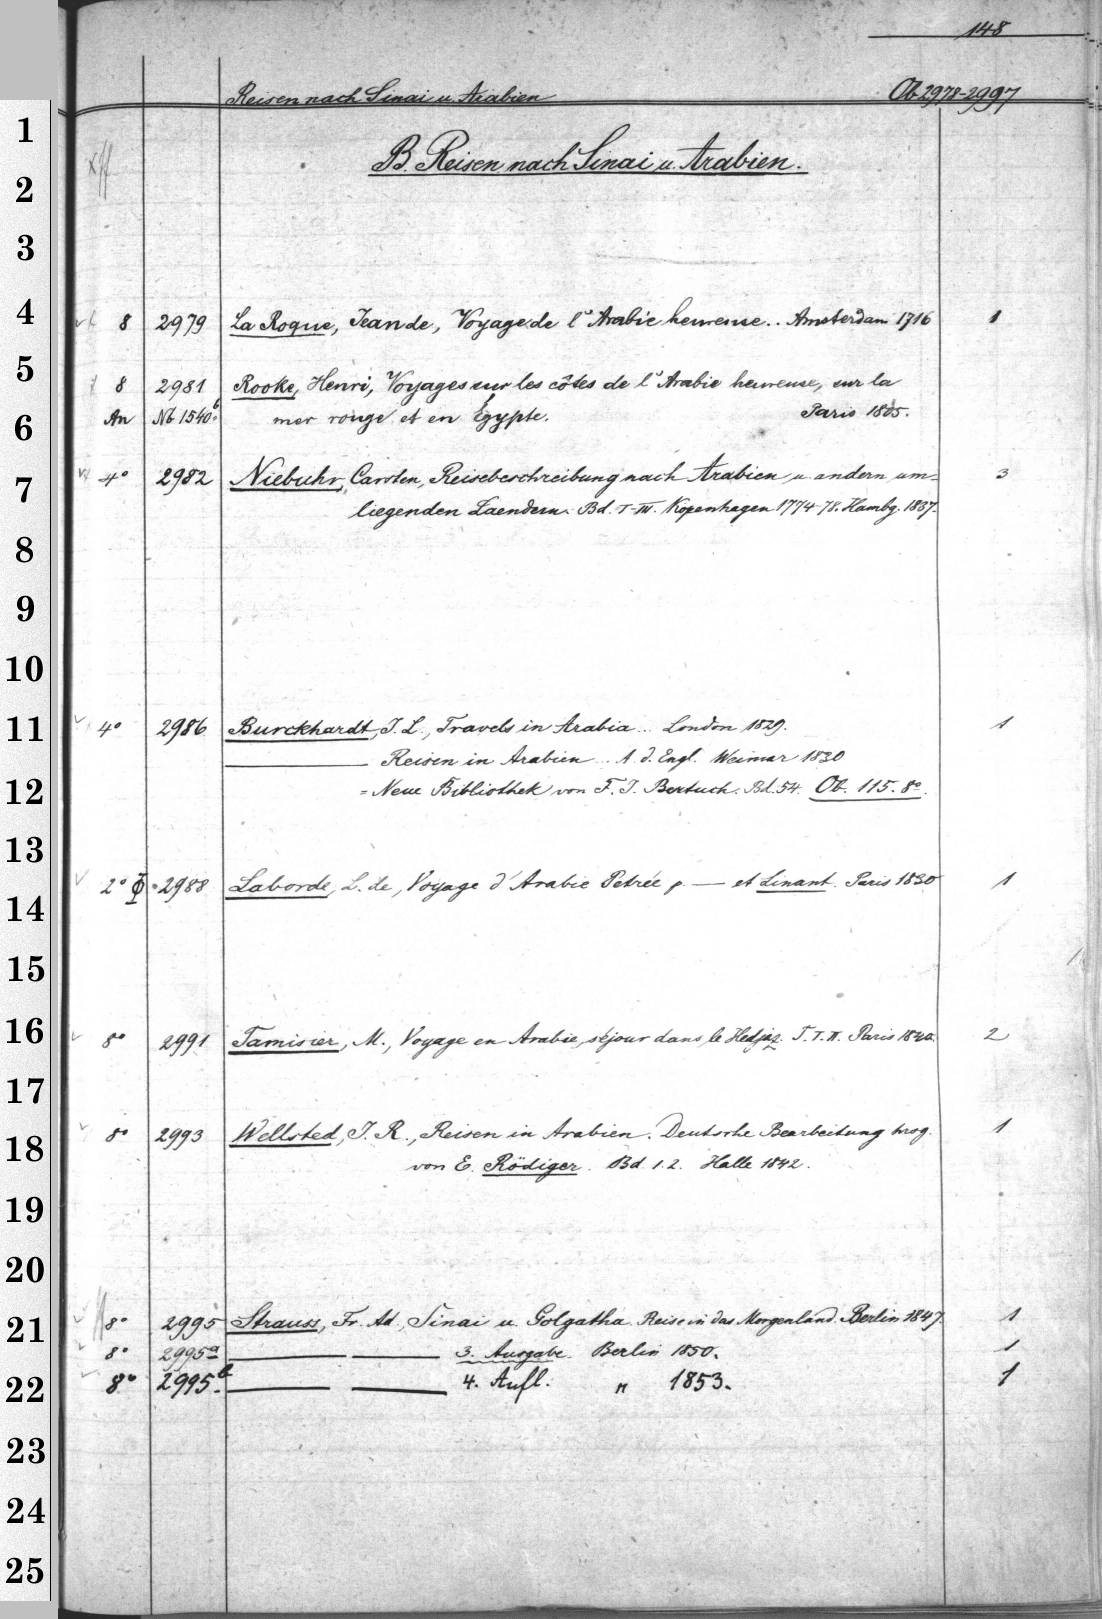 148
Reisen nach Sinai u. Arabien Ob 2978-2997
B. Reisen nach Sinai u. Arabien.
8 2979 La Roque, Jean de, Voyage de l'Arabie heureuse.. Amsterdam 1716 1
8 2981 Rooke, Henri, Voyages sur les côtes de l'Arabie heureuse, sur la
An Nb 1540b. mer rouge et en Egypte. Paris 1805.
4° 2982 Niebuhr, Carsten, Reisebeschreibung nach Arabien u. andern um- 3
liegenden Laendern. Bd. I-III. Kopenhagen 1774-78. Hambg. 1837.
4° 2986 Burckhardt, J. L., Travels in Arabia... London 1829. 1
Reisen in Arabien... A. d. Engl. Weimar 1830
= Neue Bibliothek von F. J. Bertuch. Bd. 54. Ob. 115. 8°.
2° 2988 Laborde, L. de, Voyage d'Arabie Petrée p. — et Linant. Paris 1830 1
8° 2991 Tamisier, M., Voyage en Arabie, séjour dans le Hedjaz. T. I. II. Paris 1840. 2
8° 2993 Wellsted, J. R., Reisen in Arabien. Deutsche Bearbeitung hrsg. 1
von E. Rödiger. Bd. 1. 2. Halle 1842.
8° 2995 Strauss, Fr. Ad., Sinai u. Golgatha. Reise in das Morgenland. Berlin 1847. 1
8° 2995a — — 3. Ausgabe. Berlin 1850. 1
8° 2995.b — — 4. Aufl. " 1853. 1
1
2
3
4
5
6
7
8
9
10
11
12
13
14
15
16
17
18
19
20
21
22
23
24
25